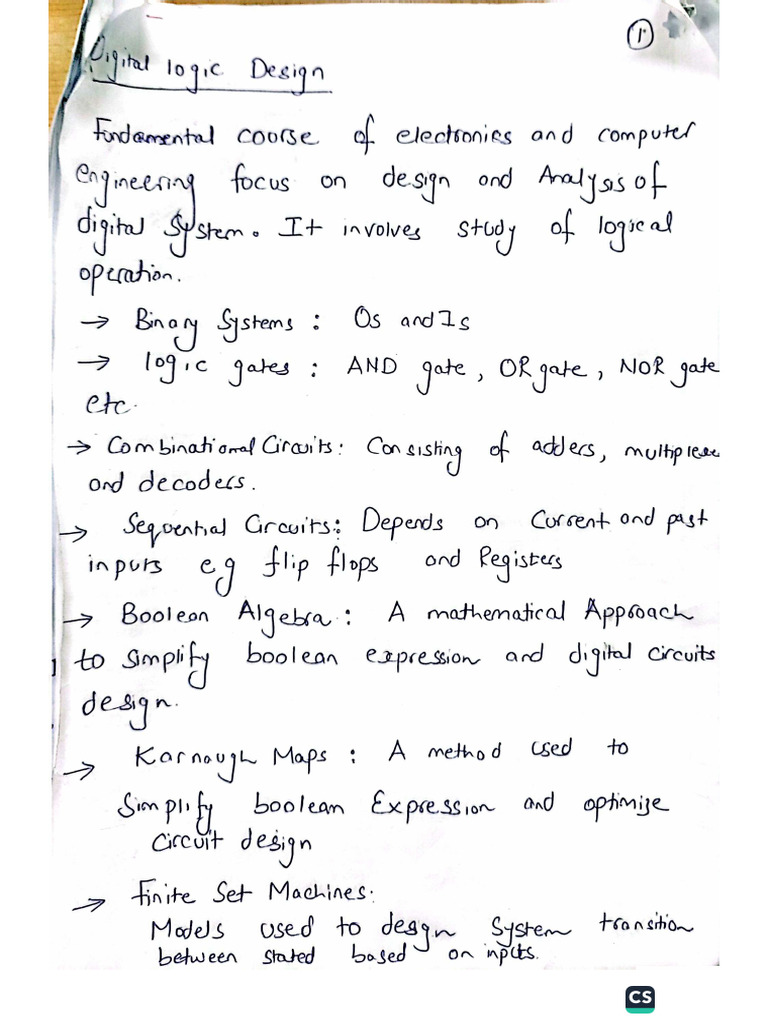 1.
Digital logic Design
Fundamental course of electronics and computer
engineering focus on design and Analysis of
digital System. It involves study of logical
operation.
→ Binary Systems : 0s and 1s
→ logic gates : AND gate, OR gate, NOR gate
etc.
→ Combinational Circuits: Consisting of adders,
and decoders.
→ Sequential Circuits: Depends on Current and past
inputs eg flip flops and Registers
→ Boolean Algebra : A mathematical Approach
to simplify boolean expression and digital circuits
design.
→ Karnaugh Maps : A method used to
Simplify boolean Expression and optimize
Circuit design
→ Finite Set Machines:
Models used to design System transition
between stated based on inputs.
CS